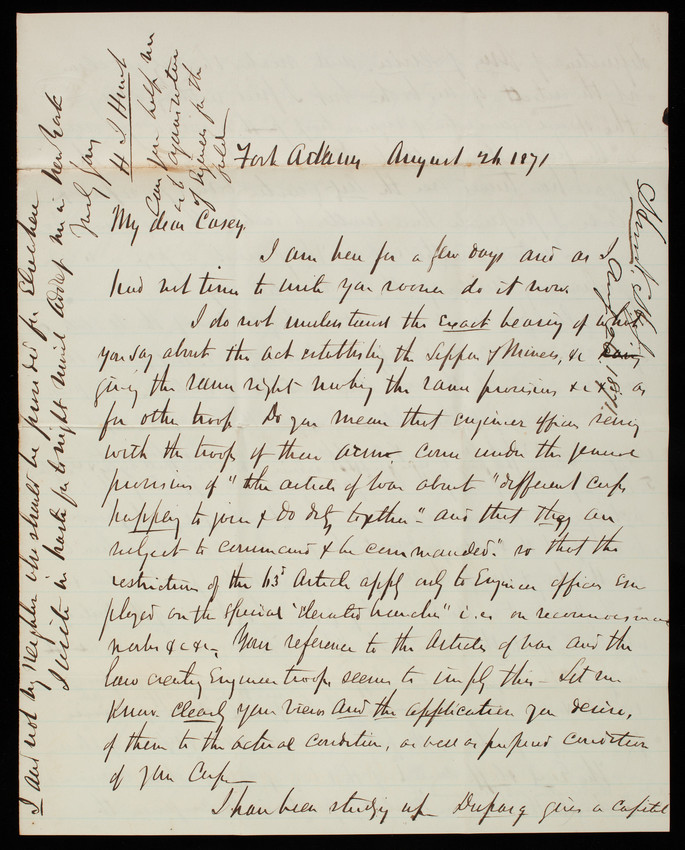 Fort Adams August 26 1871
My dear Casey.
I am here for a few days and as I
had not time to write you sooner do it now.
I do not understand the exact bearing of what
you say about the act establishing the Sappers & Miners, &c
giving the same right making the same provisions &c &c as
for other troops. Do you mean that engineer officers serving
with the troops of their arm come under the general
provisions of "the articles of War about "different corps
happening to join & do duty together" and that they are
subject to command & be commanded." so that the
restrictions of the 63d Article apply only to Engineer officers em
ployed on the special "elevated branches" i.e. on reconnoissances
works &c &c. Your reference to the Articles of War and the
law creating Engineer troops seems to imply this - Let me
know clearly your views and the application you desire,
of them to the actual condition, as well as proposed condition
of your Corps
I have been studying up Duparcq gives a capital
I and not my neighbor who should be provided for elsewhere
I write in haste for tonight mail address me in New York
Truly Yours
H J Hunt
Can you help me
as to organization
of Engineers for the
field
Hunt.
Aug 26. 1871